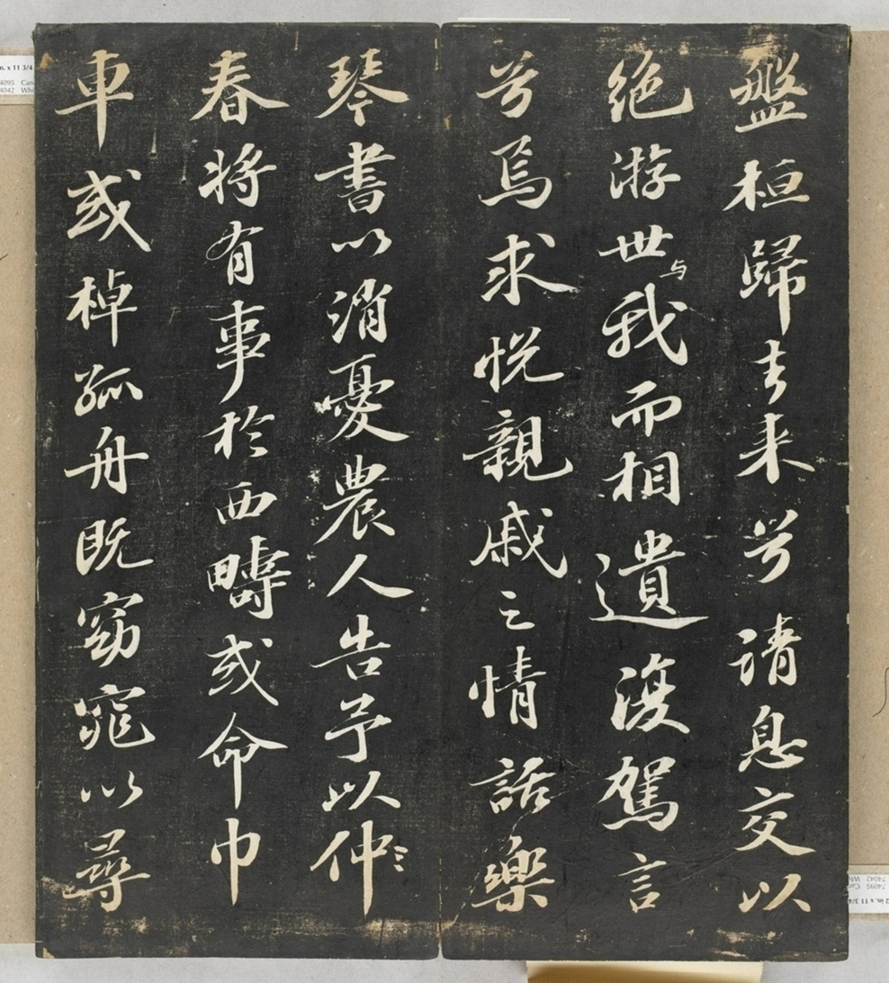 盤桓歸去来兮請息交以
絶游世与我而相遺復駕言
兮焉求悦親戚之情話樂
琴書以消憂農人告予以仲
春将有事於西疇或命巾
車或棹孤舟既窈窕以尋